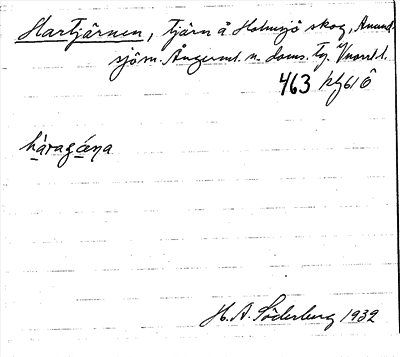 Hartjärnen, tjärn å Holmsjö skog, Anund-
sjö sn. Ångerml. n. doms. tg. Vnorrl. l.
463 kfg61Ö
hàragǻŋa
H. A. Söderberg 1932